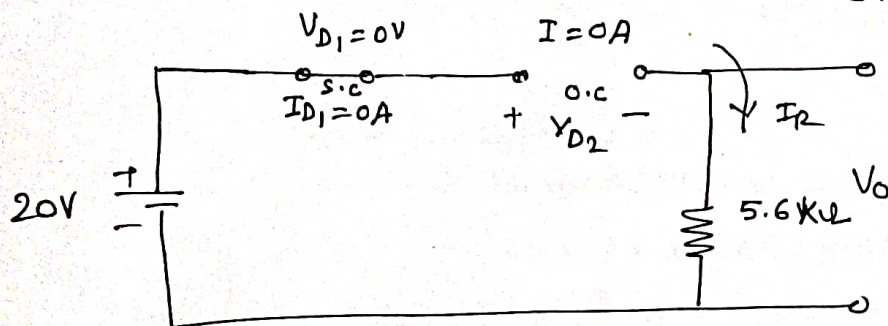 V_D1 = 0V
I = 0A
S.C
I_D1 = 0A
O.C
+ V_D2 -
I_R
+
20V
-
5.6 KΩ
V_O